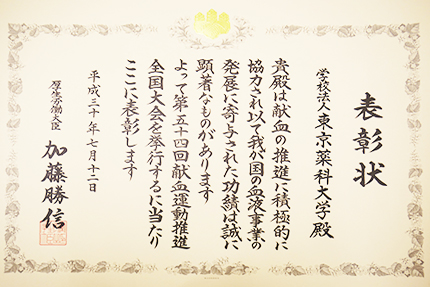 表彰状
学校法人東京薬科大学殿
貴殿は献血の推進に積極的に
協力され以て我が国の血液事業の
発展に寄与された功績は誠に
顕著なものがあります
よって第五十四回献血運動推進
全国大会を挙行するに当たり
ここに表彰します
平成三十年七月十二日
厚生労働大臣 加藤勝信